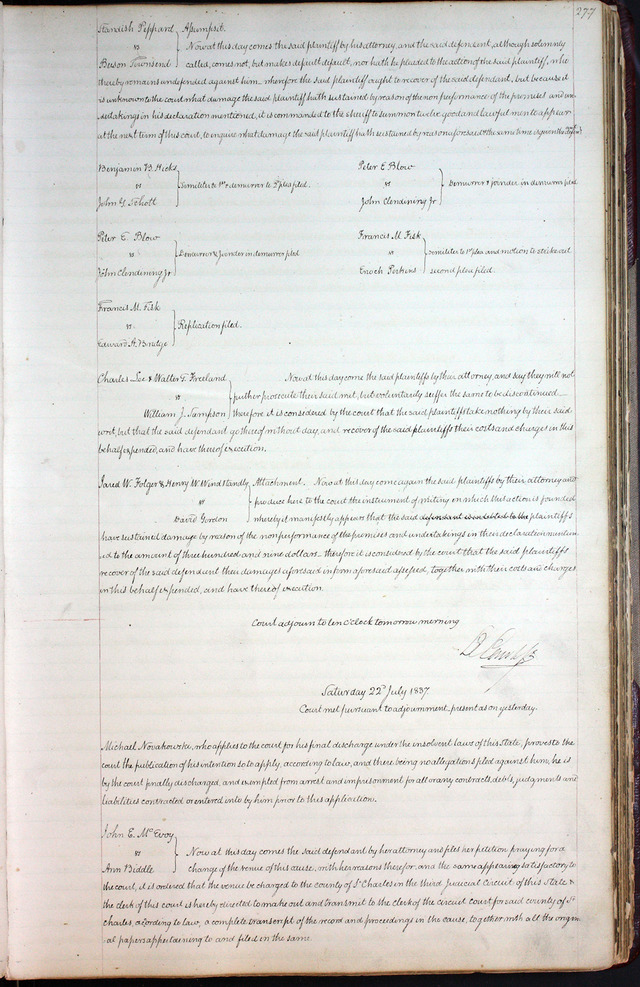 277
Standish Peppard } Assumpsit.
vs } Now at this day comes the said plaintiff by his attorney, and the said defendant, although solemnly
Beeson Townsend } called, comes not, but makes default, nor hath he pleaded to the action of the said plaintiff, who
thereby remains undefended against him – wherefore the said plaintiff ought to recover of the said defendant, but because it
is unknown to the court what damage the said plaintiff hath sustained by reason of the non performance of the premises and un-
dertakings in his declaration mentioned, it is commanded to the sheriff to summon twelve good and lawful men to appear
at the next term of this court, to enquire what damage the said plaintiff hath sustained by reason aforesaid & the same time is given the
Benjamin B. Hicks
vs } Similiter to 1st & demurrer to 2d plea filed.
John G. Shott
Peter E Blow
vs } Demurrer & joinder in demurrer filed
John Clendining Jr
Peter E. Blow
vs } Demurrer & joinder in demurrer filed
John Clendining Jr
Francis M. Fisk
vs } Similiter to 1st plea and motion to strike out
Enoch Perkins } second plea filed.
Francis M. Fisk
vs } Replication filed.
Edward A. Bridge
Charles Lee & Walter F. Freeland } Now at this day come the said plaintiffs by their attorney, and say they will not
vs } further prosecute their said writ, but voluntarily suffer the same to be discontinued –
William J. Sampson } therefore it is considered by the court that the said plaintiffs take nothing by their said
writ, but that the said defendant go thereof without day, and recover of the said plaintiffs their costs and charges in this
behalf expended, and have thereof execution.
Jared W. Folger & Henry W. Windstandly } Attachment. Now at this day come again the said plaintiffs by their attorney and
vs } produce here to the court the instrument of writing on which this action is founded
David Gordon } whereby it manifestly appears that the said defendant is indebted to the plaintiffs
have sustained damage by reason of the nonperformance of the premises and undertakings in their declaration mention-
ed to the amount of three hundred and nine dollars – therefore it is considered by the court that the said plaintiffs
recover of the said defendant their damages aforesaid in form aforesaid assessed, together with their costs and charges
in this behalf expended, and have thereof execution.
Court adjourn to ten o'clock tomorrow morning
Saturday 22d July 1837
Court met pursuant to adjournment present as on yesterday.
Michael Novakowske, who applies to the court for his final discharge under the insolvent laws of this State, proves to the
court the publication of his intention so to apply, according to law, and there being no allegations filed against him, he is
by the court finally discharged, and exempted from arrest and imprisonment for all or any contracts, debts, judgments and
liabilities contracted or entered into by him prior to this application.
John E. McEvoy
vs } Now at this day comes the said defendant by her attorney and files her petition praying for a
Ann Biddle } change of the venue of this cause, with her reasons therefor, and the same appearing satisfactory to
the court, it is ordered that the venue be changed to the county of St Charles in the third judicial circuit of this State &
the clerk of this court is hereby directed to make out and transmit to the clerk of the circuit court for said county of St
Charles according to law, a complete transcript of the record and proceedings in the cause, together with all the origin-
al papers appertaining to and filed in the same.